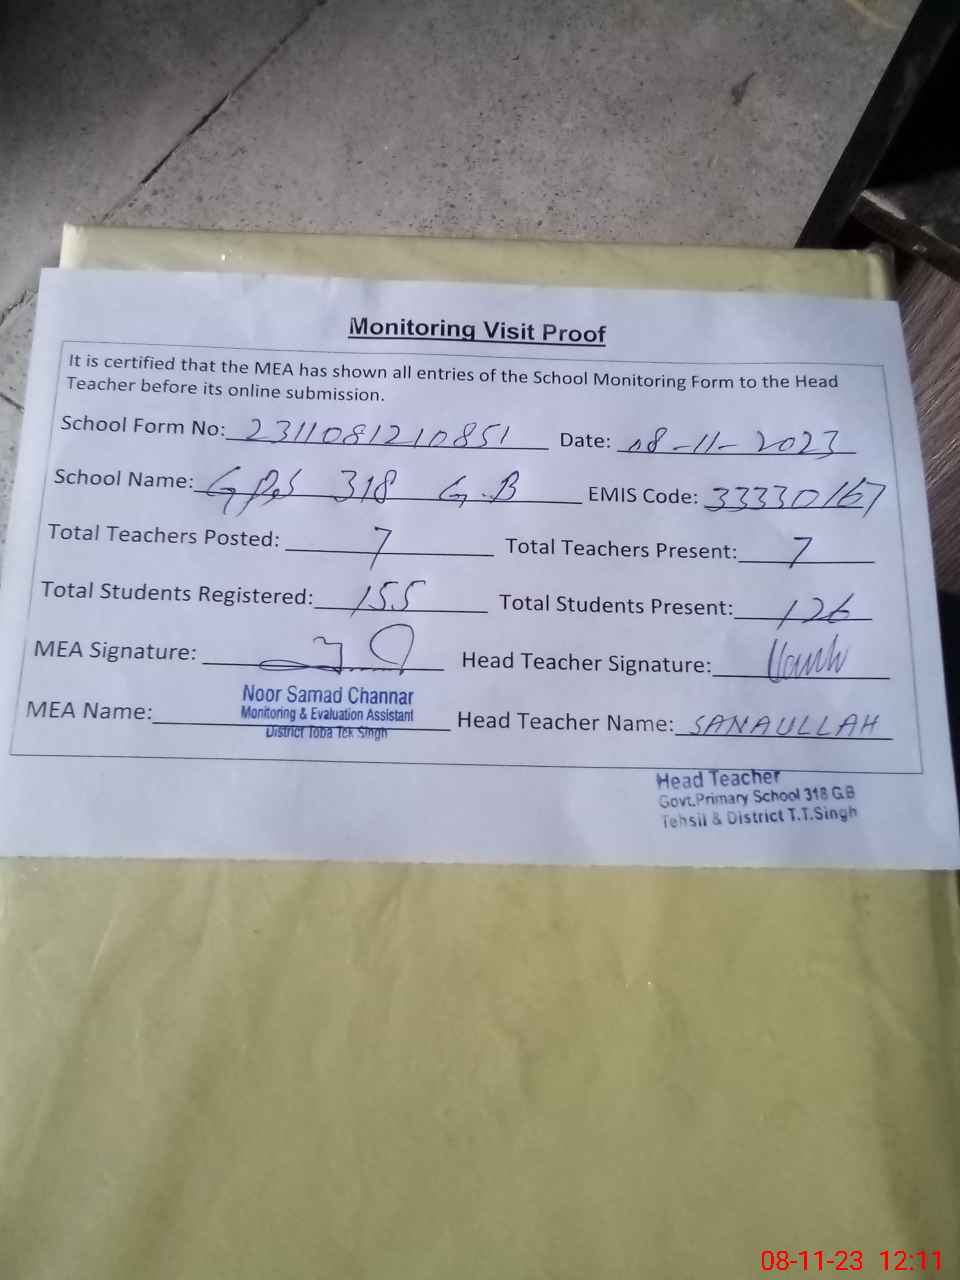 Monitoring Visit Proof
It is certified that the MEA has shown all entries of the School Monitoring Form to the Head
Teacher before its online submission.
School Form No: 2311081210851 Date: 08-11-2023
School Name: GPS 318 G.B EMIS Code: 33330167
Total Teachers Posted: 7 Total Teachers Present: 7
Total Students Registered: 155 Total Students Present: 126
MEA Signature: Head Teacher Signature:
Noor Samad Channar
Monitoring & Evaluation Assistant
District Toba Tek Singh
MEA Name: Head Teacher Name: SANAULLAH
Head Teacher
Govt.Primary School 318 G.B
Tehsil & District T.T.Singh
08-11-23 12:11